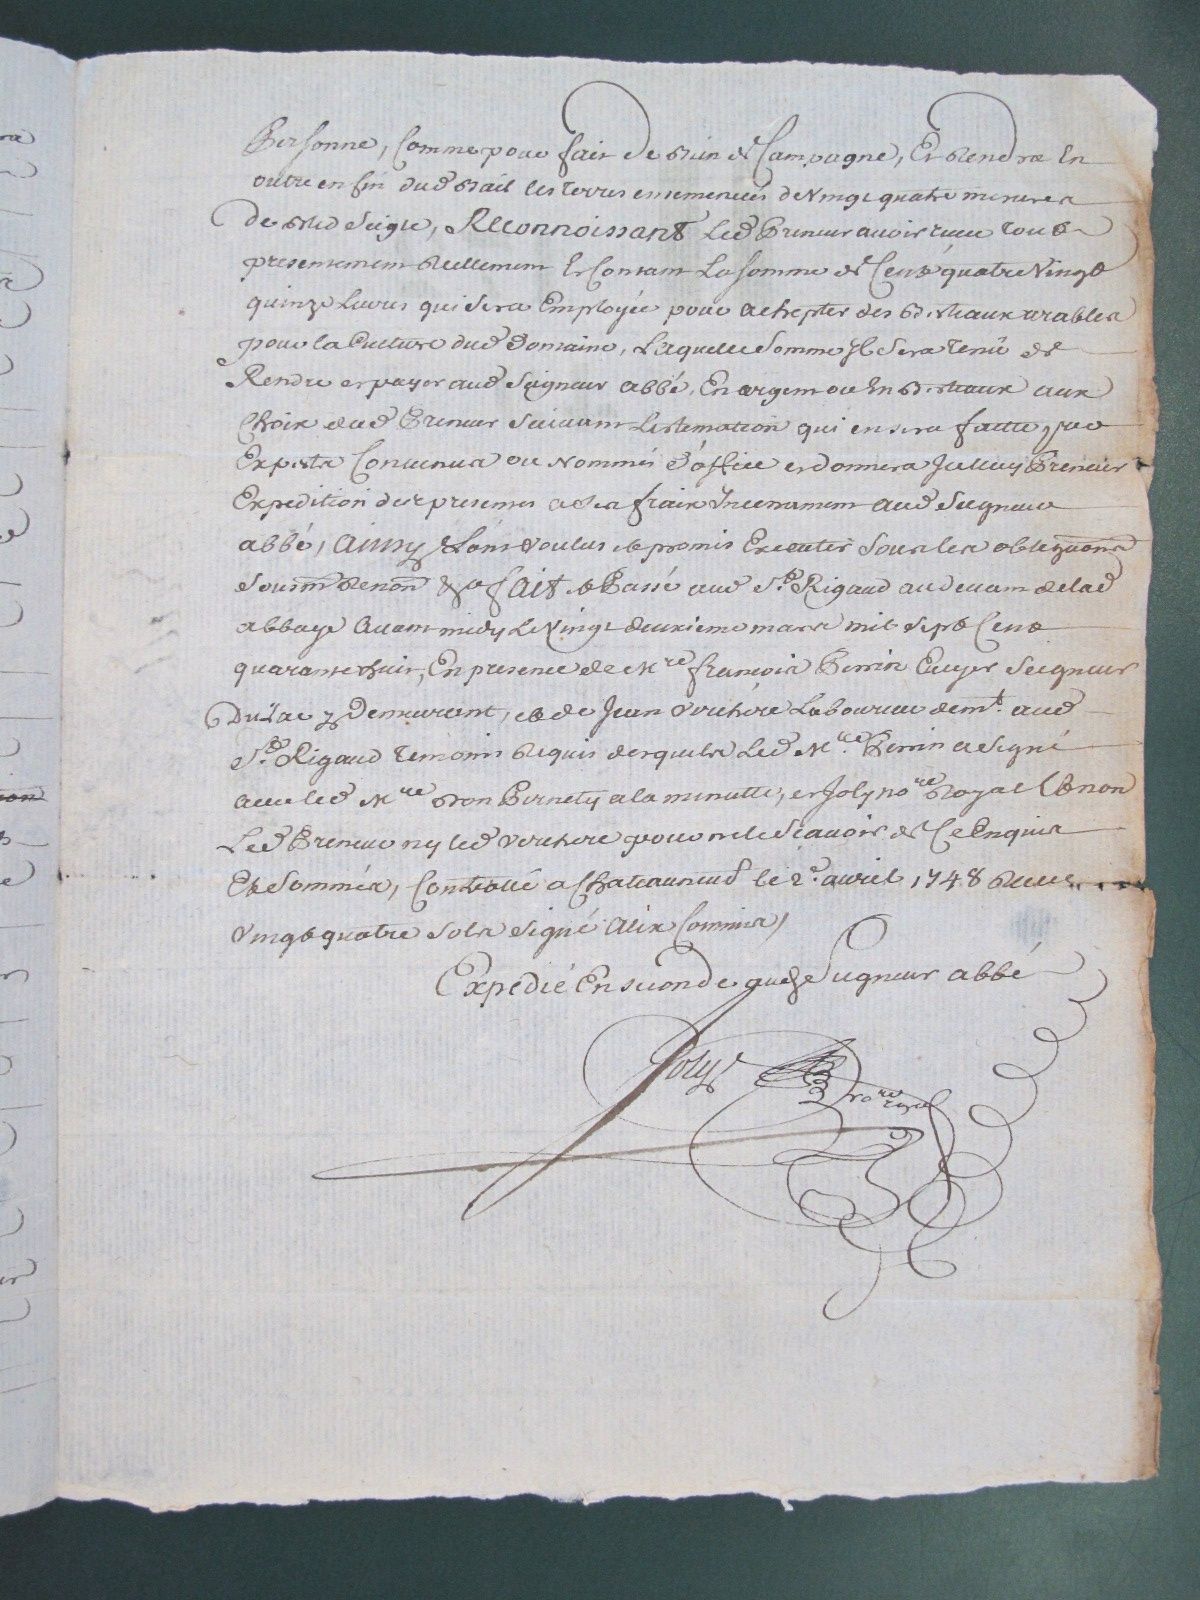 Personne, Comme pour fait de Bien de Campagne, Et Rendra En
outre en fin dud Bail les terres ensemencées de Vingt quatre mesures
de Bled Seigle, Reconnoissant Led Preneur avoir receu tout
presentement Reellement Et Contant La somme de Cent quatre Vingt
quinze Livres qui sera Employée pour achepter des Bestiaux arables
pour la Culture dud Domaine, Laquelle somme Jl Sera tenu de
Rendre et payer aud Seigneur abbé, En argent ou En Bestiaux aux
Choix dud Preneur Suivant Lestimation qui en sera faitte par
Experts Convenus ou Nommés d'office et donnera Jcelluy Preneur
Expedition des presentes a ses fraix Jncessamment aud Seigneur
abbé, Ainsy Lont Voulus et promis Executer Sous les obligaons
Soumn Renon &a fait et Passé aud St Rigaud au devant de lad
abbaye Avant midy Le Vingt deuxieme mars mil sept Cent
quarante huit, En presence de Mre françois Perrin Ecuyer Seigneur
Du Lac y Demeurant, et de Jean Vouthere Laboureur demt. aud
St Rigaud temoins Requis desquels Led Mre Perrin a Signé
avec led Mre Dom Pernety a la minutte, et Joly nore Royal Et non
Led Preneur ny led Vouthere pour ne le Scavoir de Ce Enquis
Et Sommés, Controllé a Chateauneuf le 2e. avril 1748 Receu
Vingt quatre Sols Signé Alix Commis,
Expedié En seconde aud Seigneur abbé
Joly
nore royal